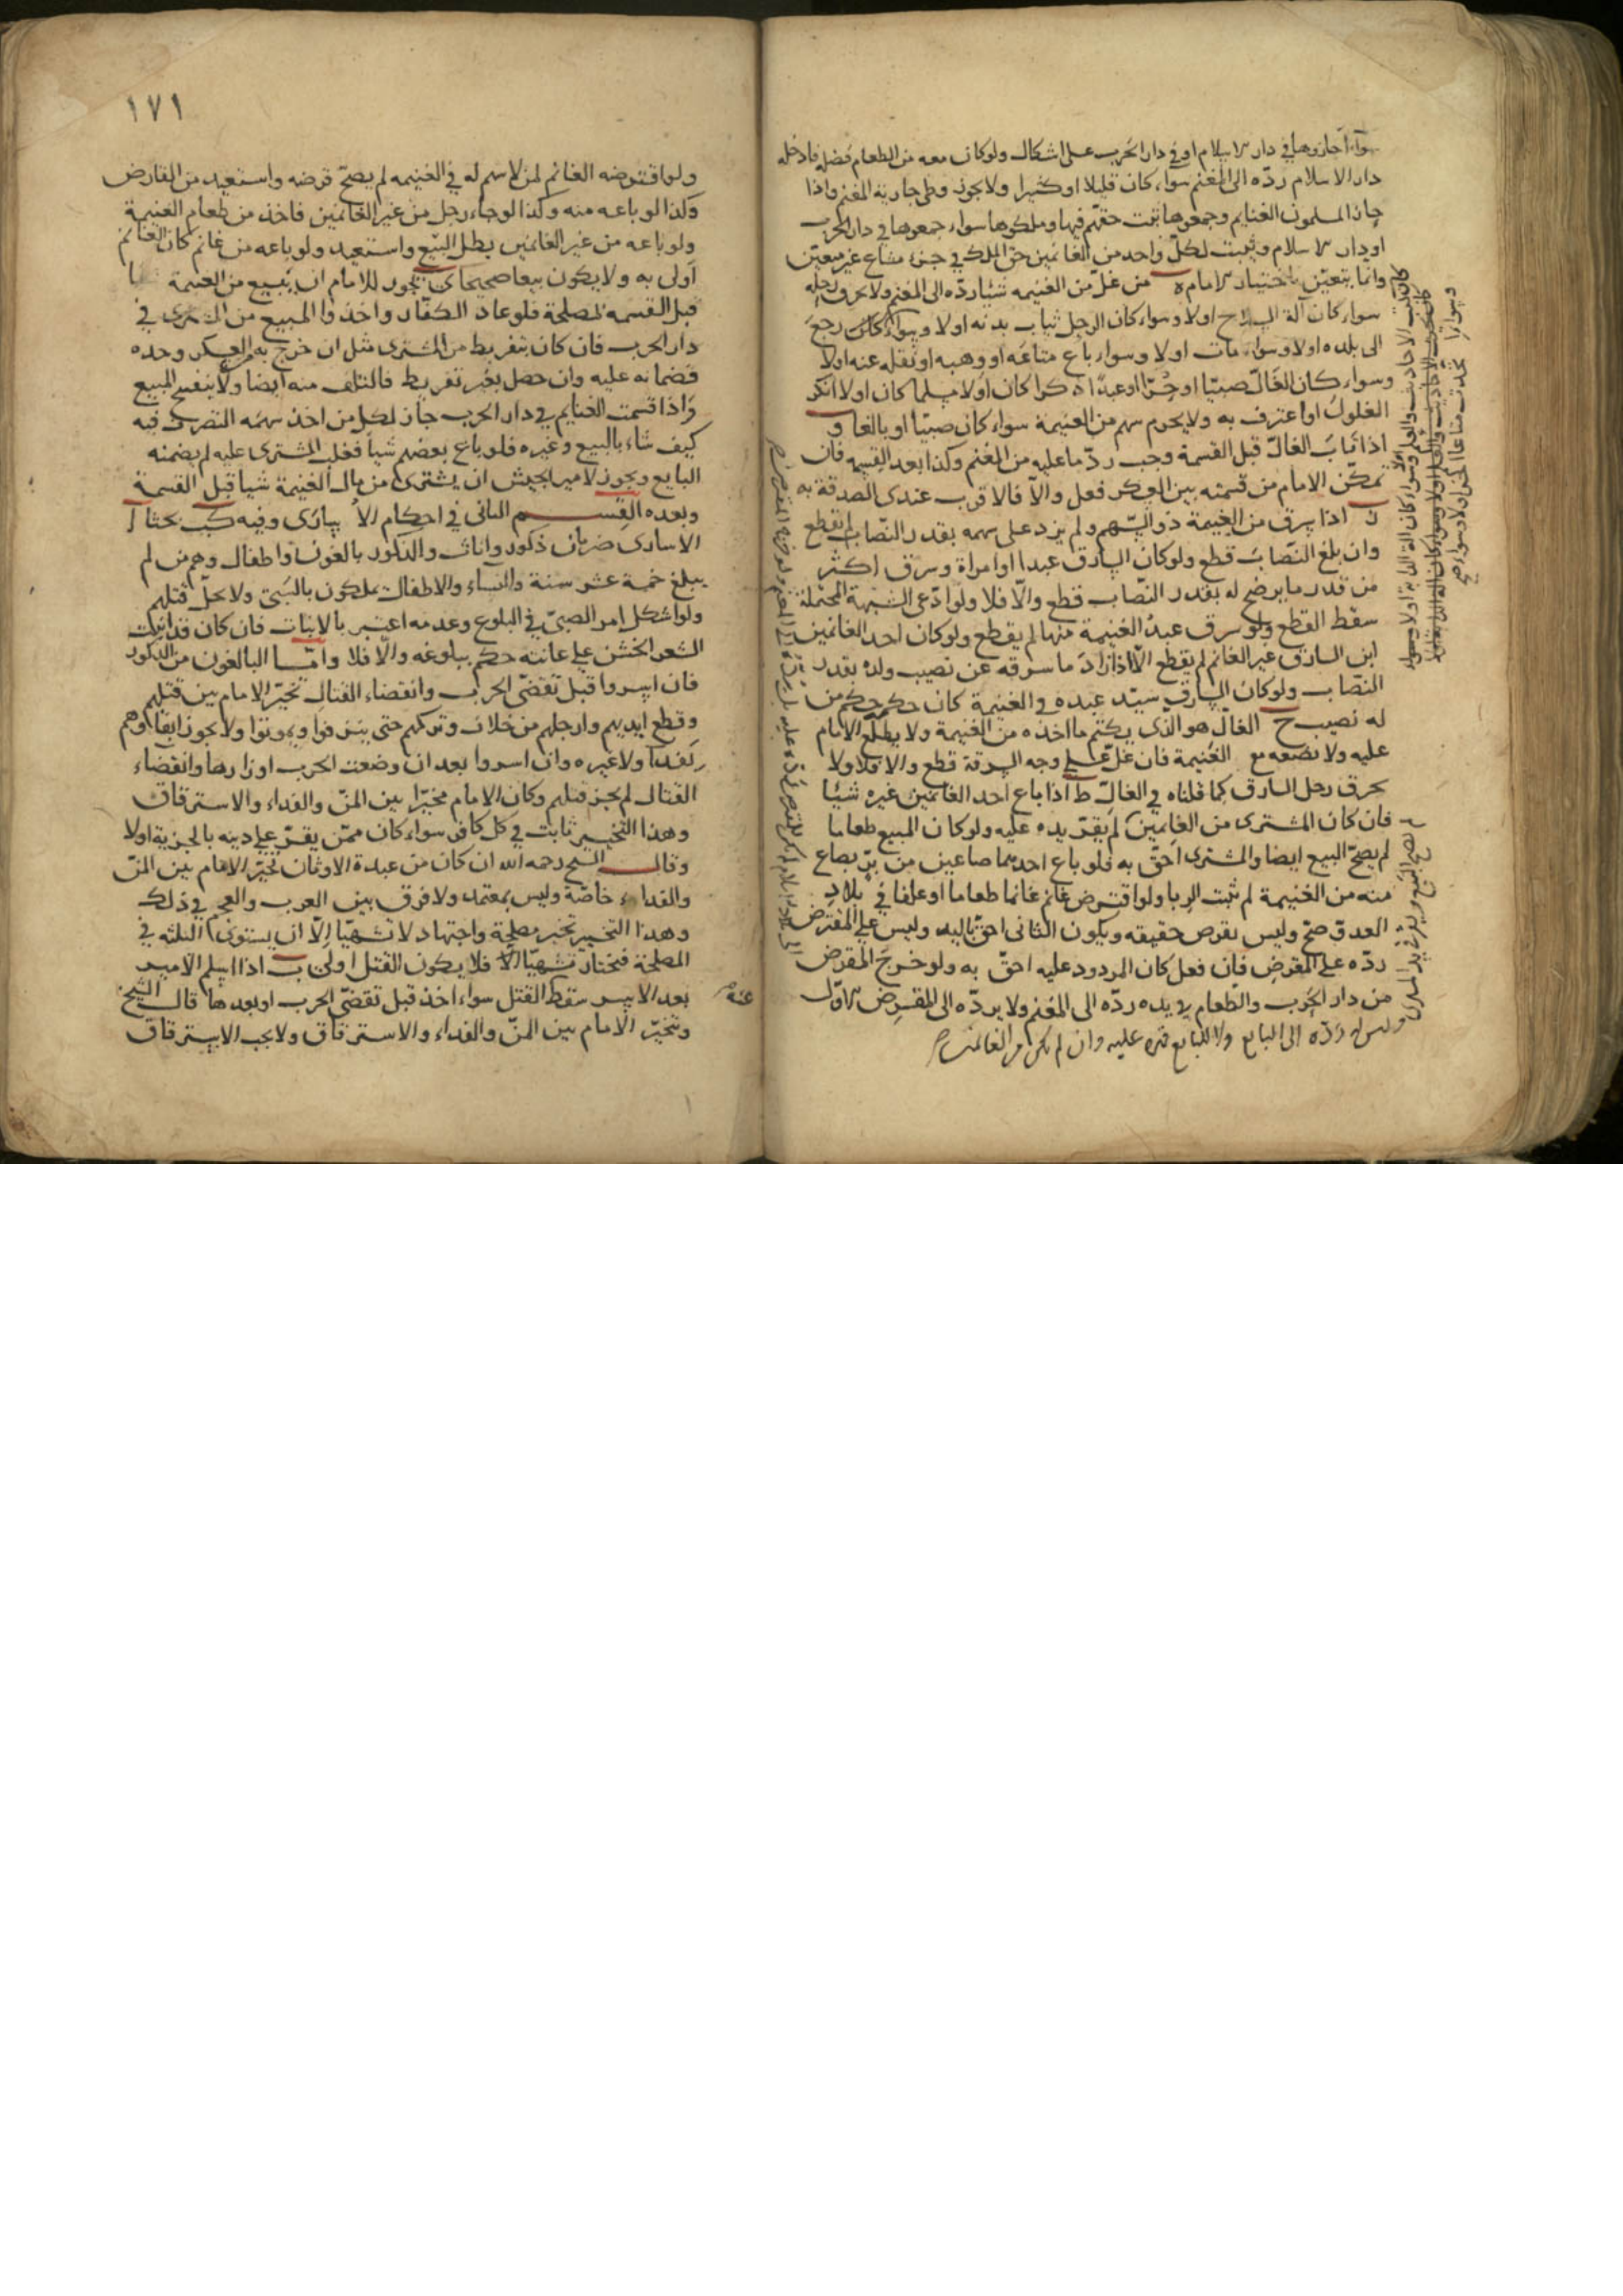 سواء أجازوها في دار الاسلام او في دار الحرب على اشكال ولو كان معه من الطعام فضل فادخله
دار الاسلام ردّه الى المغنم سواء كان قليلا او كثيرا ولا يجوز وطى جارية المغنم واذا
حاز المسلمون الغنايم وجمعوها ثبت حقهم فيها وملكوها سواء جمعوها في دار الحرب
او دار الاسلام ويثبت لكلّ واحد من الغانمين حق الملك في جزء مشاع غير معيّن
وانما يتعيّن باختيار الامام ه من غلّ من الغنيمه شيئا ردّه الى المغنم ولا يحرق رحله
سواء كان آلة السلاح اولا وسواء كان الرجل ثياب بدنه اولا وسواء كان رجع
الى بلده اولا وسواء مات اولا وسواء باع متاعه او وهبه او نقله عنه اولا
وسواء كان الغالّ صبيّا او حُرّا او عبدًا ذكرا كان اولا مسلما كان اولا انكر
الغلول او اعترف به ولا يحرم سهم من الغنيمة سواء كان صبيّا او بالغا و
اذا تاب الغالّ قبل القسمة وجب ردّ ما عليه من المغنم وكذا بعد القسمه فان
تمكّن الامام من قسمته بين العسكر فعل والّا فالاقرب عندى الصدقة به
ز اذا سرق من الغنيمة ذو السّهم ولم يزد على سهمه بقدر النّصاب لم يقطع
وان بلغ النّصاب قطع ولو كان السارق عبدا او امراة وسرق اكثر
من قدر ما يرضخ له بقدر النّصاب قطع والّا فلا ولو ادّعى الشبهة المحتملة
سقط القطع ولو سرق عبدُ الغنيمة منها لم يقطع ولو كان احد الغانمين
ابن السارق غير الغانم لم يقطع الّا اذا زاد ما سرقه عن نصيب ولده بقدر
النّصاب ولو كان السارق سيّد عبده في الغنيمة كان حكمه حكم من
له نصيب ح الغالّ هو الّذى يكتم ما اخذه من الغنيمة ولا يطلع الامام
عليه ولا يضعه مع الغنيمة فان غلّ على وجه السرقة قطع والا فلا ولا
يحرق رحل السارق كما قلناه في الغالّ ط اذا باع احد الغانمين غيره شيئا
فان كان المشترى من الغانمين لم يقرّ يده عليه ولو كان المبيع طعاما
لم يصحّ البيع ايضا والمشترى احقّ به فلو باع احدهما صاعين من برّ بصاع
منه من الغنيمة لم يثبت الربا ولو اقترض غانم غانما طعاما او علفا في بلاد
العدوّ صحّ وليس بقرض حقيقه ويكون الثانى احق باليد وليس على المقترض
ردّه على المقرض فان فعل كان المردود عليه احقّ به ولو خرج المقرض
من دار الحرب والطعام في يده ردّه الى المغنم ولا يردّه الى المقرض الاوّل
وليس له ردّه الى البايع ولا للبايع قهره عليه وان لم يكن من الغانمين
١٧١
ولو اقترضه الغانم لمن لا سهم له في الغنيمه لم يصحّ قرضه واستعيد من القارض
وكذا لو باعه منه وكذا لو جاء رجل من غير الغانمين فاخذ من طعام الغنيمة
ولو باعه من غير الغانمين بطل البيع واستعيد ولو باعه من غانم كان الغانم
اولى به ولا يكون بيعا صحيحا ى يجوز للامام ان يبيع من الغنيمة شيئا
قبل القسمه لمصلحة فلو عاد الكفّار واخذوا المبيع من المشترى في
دار الحرب فان كان بتفريط من المشترى مثل ان خرج به من العسكر وحده
فضمانه عليه وان حصل بغير تفريط فالتلف منه ايضا ولا ينفسخ المبيع
واذا قسمت الغنايم في دار الحرب جاز لكل من اخذ سهمه التصرف فيه
كيف شاء بالبيع وغيره فلو باع بعضهم شيأ فغلب المشترى عليه لم يضمنه
البايع ويجوز لامير الجيش ان يشترى من مال الغنيمة شيا قبل القسمة
وبعده القسم الثانى في احكام الاسارى وفيه كب بحثا ا
الاسارى ضربان ذكور واناث والذكور بالغون واطفال وهم من لم
يبلغ خمسة عشر سنة والنساء والاطفال يملكون بالسّبى ولا يحلّ قتلهم
ولو اشكل امر الصبىّ في البلوغ وعدمه اعتبر بالانبات فان كان قد انبت
الشعر الخشن على عانته حكم ببلوغه والّا فلا وامّا البالغون من الذكور
فان اسروا قبل تقضّى الحرب وانقضاء القتال تخيّر الامام بين قتلهم
وقطع ايديهم وارجلهم من خلاف وتركهم حتى ينزفوا ويموتوا ولا يجوز ابقاؤهم
بفداء ولا غيره وان اسروا بعد ان وضعت الحرب اوزارها وانقضاء
القتال لم يجز قتلهم وكان الامام مخيّرا بين المنّ والفداء والاسترقاق
وهذا التخيير ثابت في كل كافر سواء كان ممّن يقرّ على دينه بالجزية اولا
وقال الشيخ رحمه الله ان كان من عبدة الاوثان تخيّر الامام بين المنّ
والفداء خاصّة وليس بمعتمد ولا فرق بين العرب والعجم في ذلك
وهذا التخيير تخير مصلحة واجتهاد لا تشهيّا الّا ان يستوى الثلثه في
المصلحة فيختار تشهيّا الّا فلا يكون القتل اولى ب اذا اسلم الاسير
بعد الاسر سقط القتل سواء اخذ قبل تقضّى الحرب او بعدها قال الشيخ
ويتخيّر الامام بين المنّ والفداء والاسترقاق ولا يجب الاسترقاق